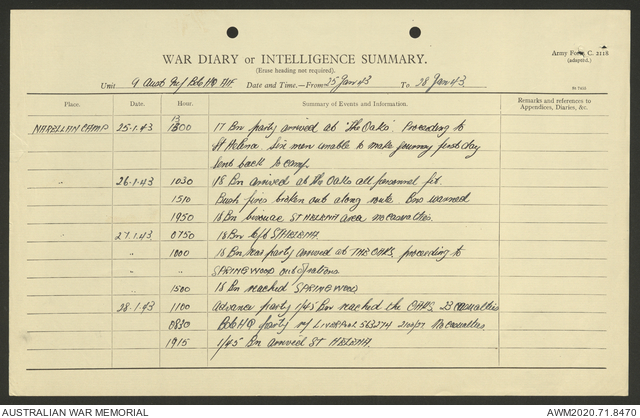 Army Form C. 2118
(adapted.)
WAR DIARY or INTELLIGENCE SUMMARY.
(Erase heading not required).
Unit 9 Aust Inf Bde HQ AIF Date and Time.—From 25 Jan 43 To 28 Jan 43
Place. Date. Hour. Summary of Events and Information. Remarks and references to Appendices, Diaries, &c.
NARELLAN CAMP 25.1.43 1300 17 Bn party arrived at "The Oaks". Proceeding to
St Helena. Six men unable to make journey first day
sent back to camp.
" 26.1.43 1030 18 Bn arrived at The Oaks all personnel fit.
1510 Bush fires broken out along route. Bns warned
1950 18 Bn bivouac ST HELENA area no casualties.
" 27.1.43 0750 18 Bn left ST HELENA.
" 1000 18 Bn rear party arrived at THE OAKS, proceeding to
" SPRINGWOOD out of rations
" 1500 18 Bn reached SPRINGWOOD
" 28.1.43 1100 Advance party 1/45 Bn reached the OAKS, 23 casualties
0830 Bde HQ party LIVERPOOL 563274 No casualties
1915 1/45 Bn arrived ST HELENA.
AUSTRALIAN WAR MEMORIAL
AWM2020.71.8470